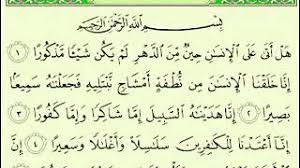 بِسْمِ اللَّهِ الرَّحْمَٰنِ الرَّحِيمِ
هَلْ أَتَىٰ عَلَى الْإِنسَٰنِ حِينٌ مِّنَ الدَّهْرِ لَمْ يَكُن شَيْئًا مَّذْكُورًا ١
إِنَّا خَلَقْنَا الْإِنسَٰنَ مِن نُّطْفَةٍ أَمْشَاجٍ نَّبْتَلِيهِ فَجَعَلْنَٰهُ سَمِيعًا
بَصِيرًا ٢ إِنَّا هَدَيْنَٰهُ السَّبِيلَ إِمَّا شَاكِرًا وَإِمَّا كَفُورًا ٣
إِنَّا أَعْتَدْنَا لِلْكَٰفِرِينَ سَلَٰسِلَا وَأَغْلَٰلًا وَسَعِيرًا ٤ إِنَّ